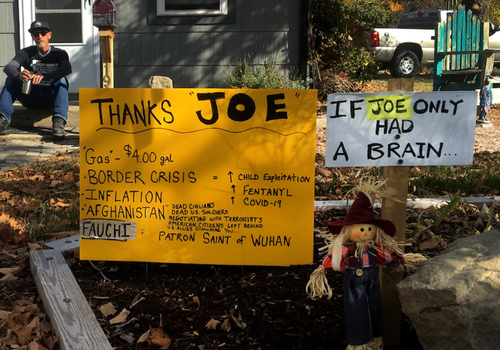 THANKS "JOE"
"Gas" - $4.00 gal
· BORDER CRISIS = ↑ CHILD Exploitation
· INFLATION ↑ FENTANYL
↑ COVID-19
· "AFGHANISTAN" DEAD CIVILIANS
DEAD US. SOLDIERS
NEGOTIATING WITH TERRORIST'S
AMERICAN CITIZENS LEFT BEHIND
US ALLIES DISOWNING YOU..
FAUCHI : PATRON SAINT OF WUHAN
IF JOE ONLY
HAD
A BRAIN...